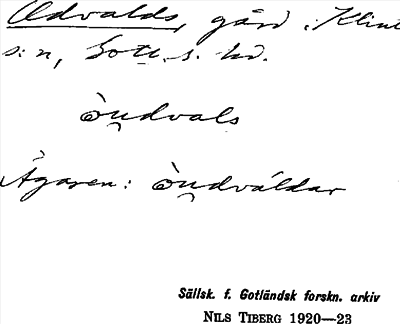 Odvalds, gård i Klint
s:n, Gotl. s. hd.
òu̯dvals
Ägaren: òu̯dváldar
Sällsk. f. Gotländsk forskn. arkiv
NILS TIBERG 1920—23